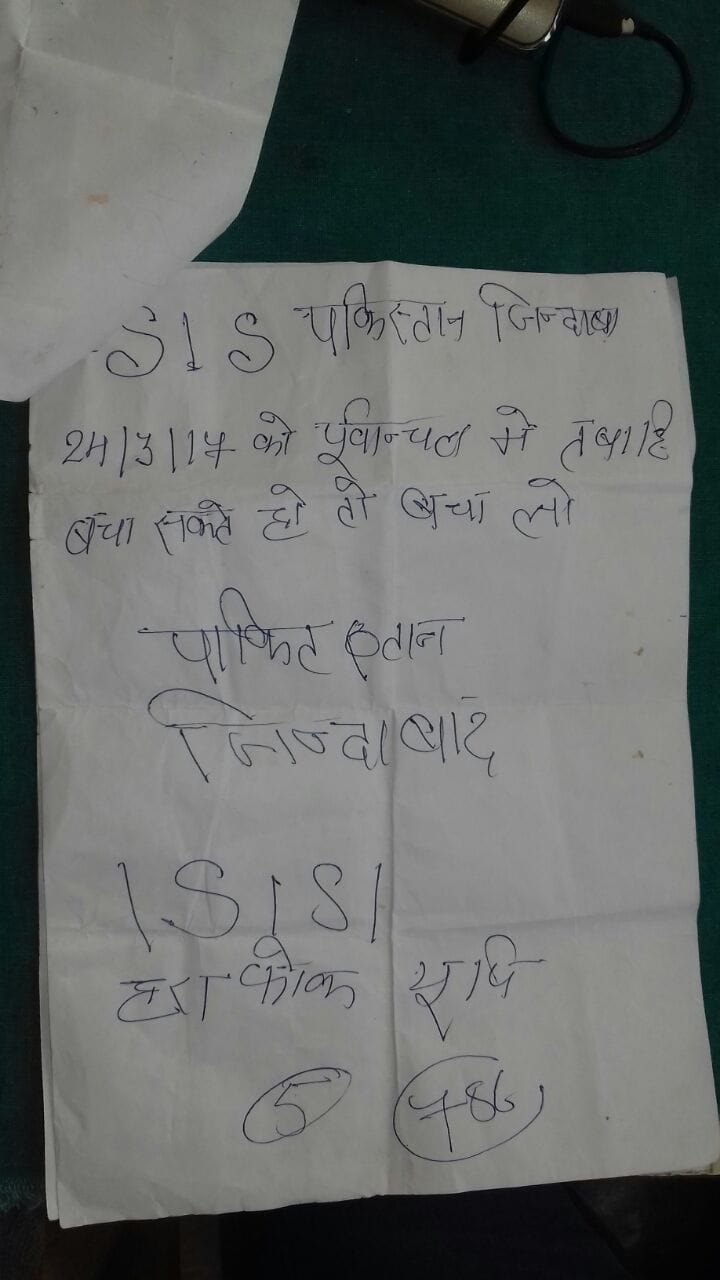 SIS पाकिस्तान जिन्दाबा
24/3/17 को पूर्वान्चल मे तबाहि
बचा सकते हो तो बचा लो
पाकिटस्तान
जिन्दाबाद
ISIS
5 786